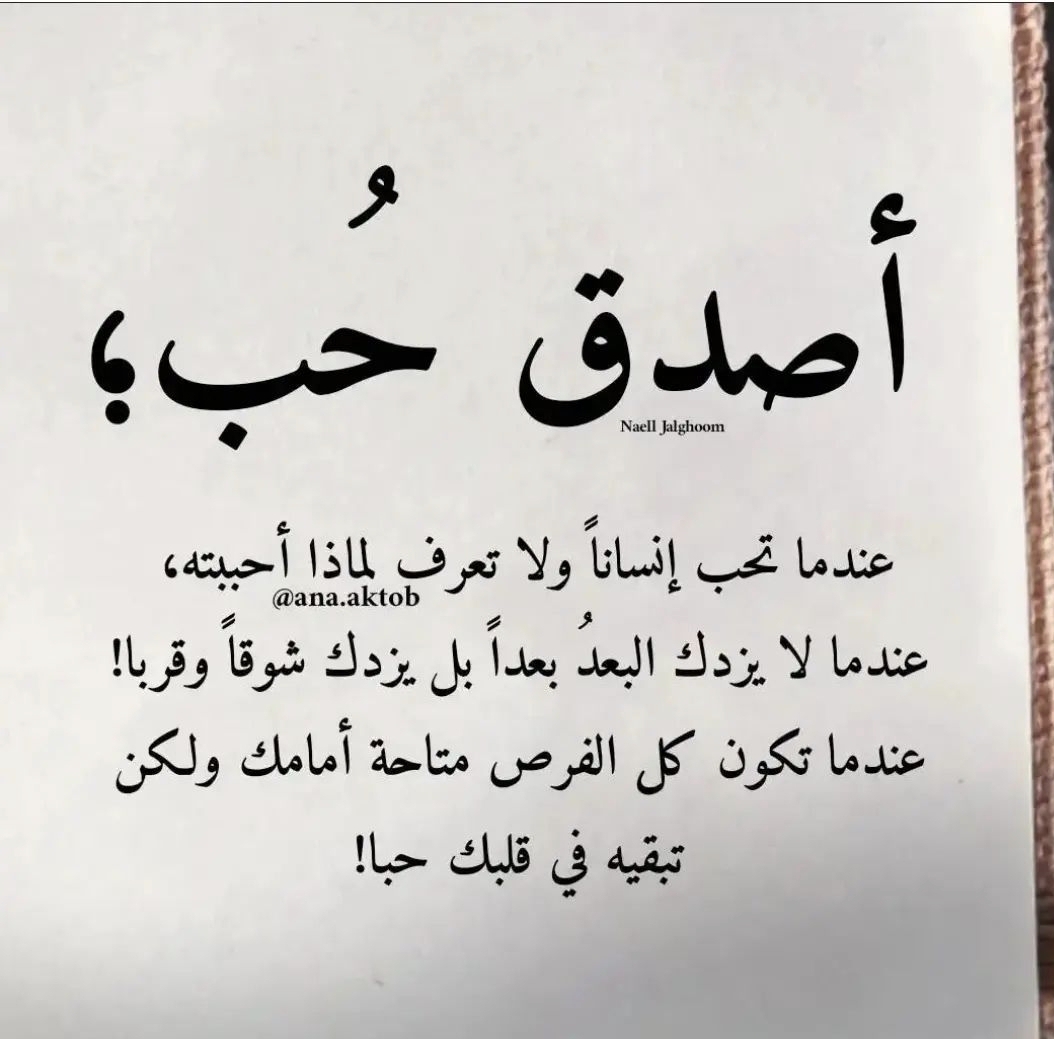 أصدق حُب؛
Naell Jalghoom
عندما تحب إنساناً ولا تعرف لماذا أحببته،
@ana.aktob
عندما لا يزدك البعدُ بعداً بل يزدك شوقاً وقربا!
عندما تكون كل الفرص متاحة أمامك ولكن
تبقيه في قلبك حبا!